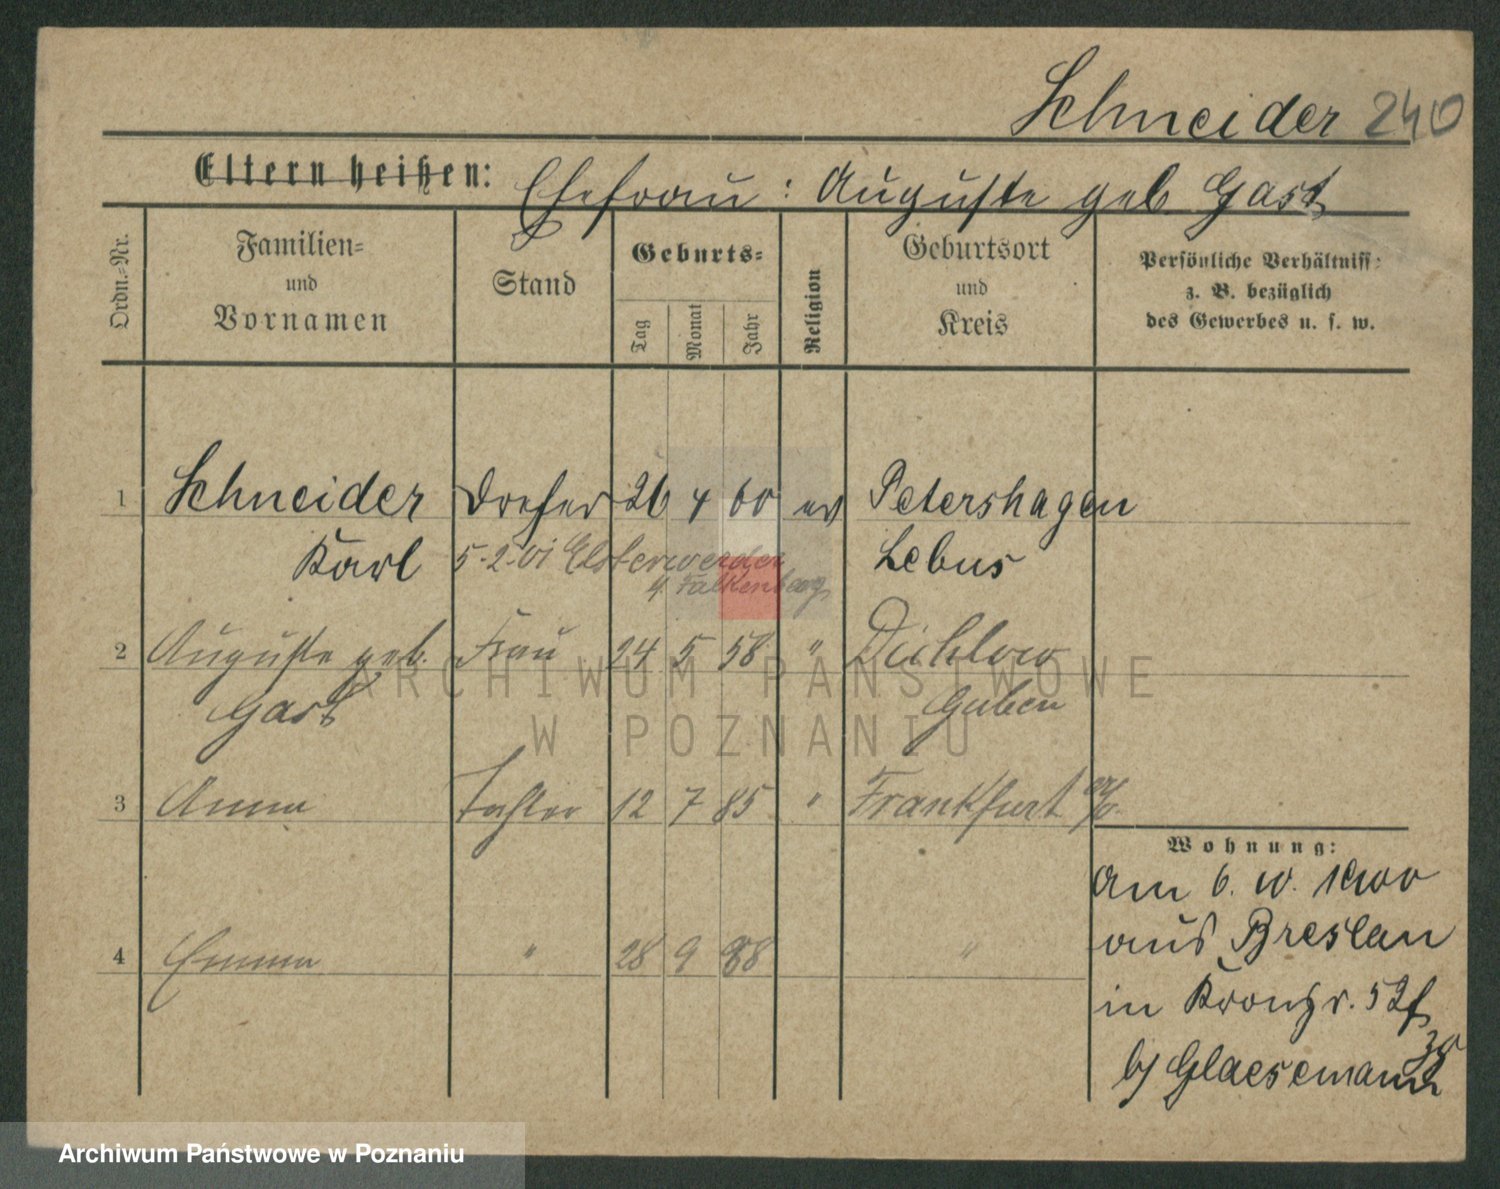 Schneider 240
Eltern heißen: Ehefrau: Auguste geb. Gast
Ordn.-Nr.
Familien-
und
Vornamen
Stand
Geburts-
Tag
Monat
Jahr
Religion
Geburtsort
und
Kreis
Persönliche Verhältniss-
z. B. bezüglich
des Gewerbes u. s. w.
1 Schneider Dreher 26 4 60 ev Petershagen
Karl 5.2.01 Elsterwerda Lebus
Falkenberg
2 Auguste geb. Frau 24 5 58 "
Gast Guben
3 Anna Tochter 12 7 85 " Frankfurt a/O.
4 Emma " 28 9 88 "
Wohnung:
am 6. 10. 1900
aus Breslau
in Kronpr. 52
b/ Glaesemann
zg
ARCHIWUM PAŃSTWOWE
W POZNANIU
Archiwum Państwowe w Poznaniu